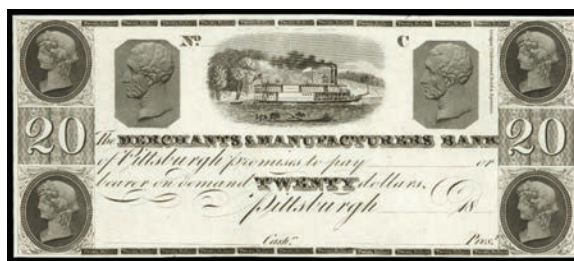 No C
20 The MERCHANTS & MANUFACTURERS BANK 20
of Pittsburgh promises to pay or
bearer on demand TWENTY dollars,
Pittsburgh 18
Cashr. Prest.